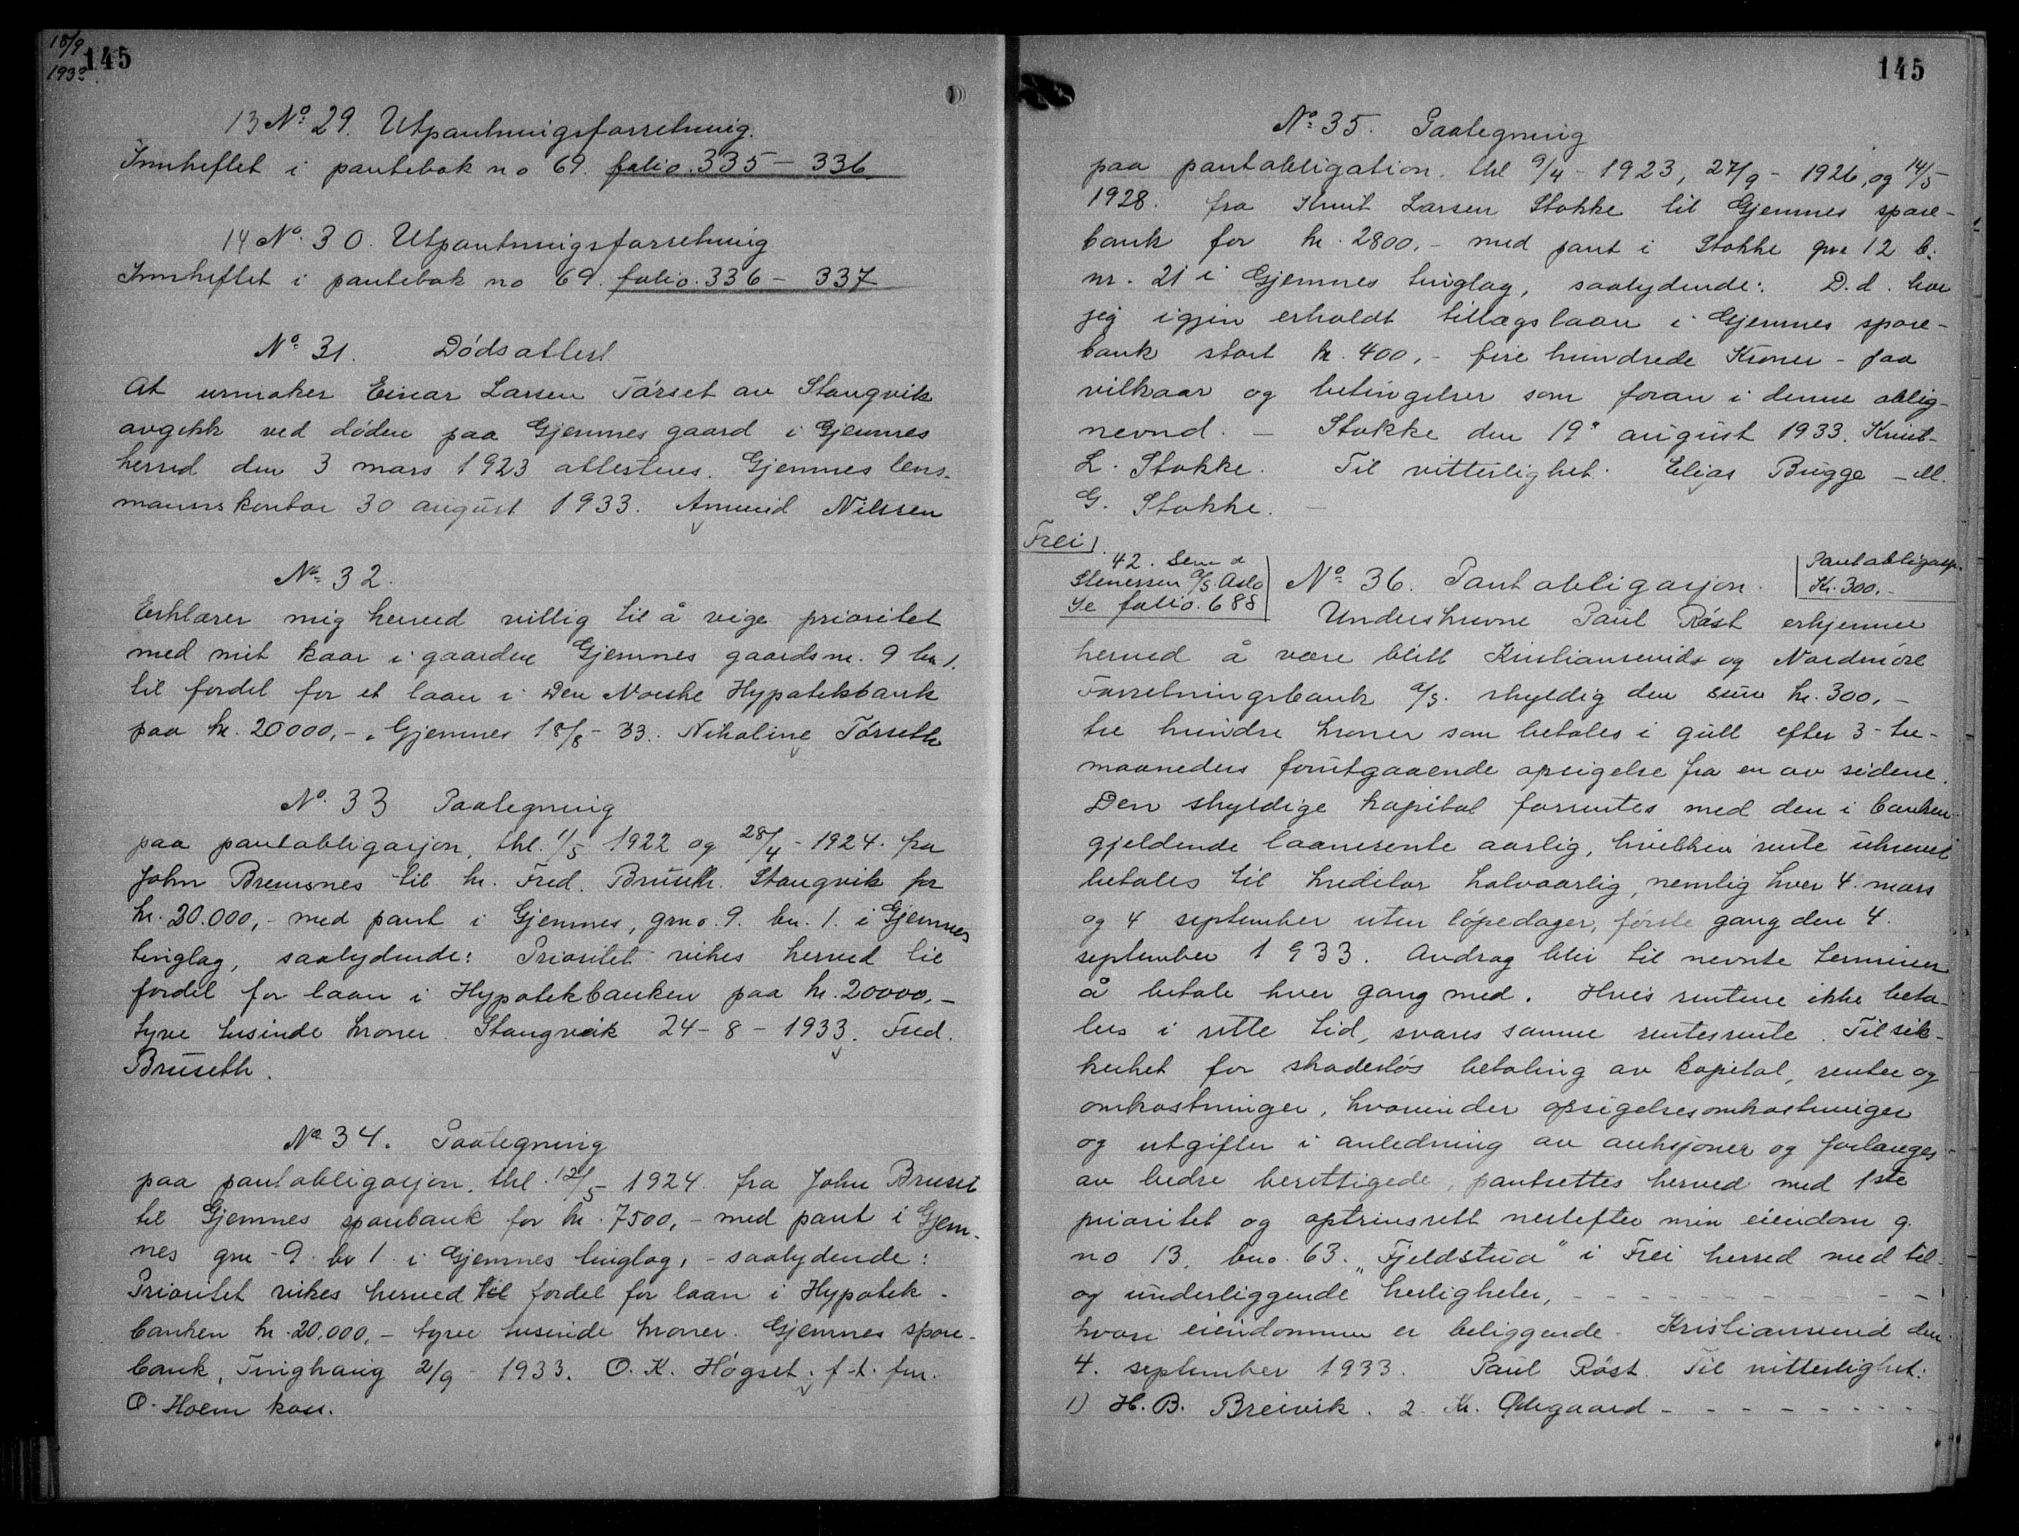 15/9
1933.
145
13 No 29. Utpantningsforretning.
Innheftet i pantebok no 69. folio. 335 – 336
14 No. 30. Utpantningsforretning
Innheftet i pantebok no 69. folio. 336 – 337
No. 31. Dødsattest
At urmaker Einar Larsen Tørset av Stangvik
avgikk ved døden paa Gjemnes gaard i Gjemnes
herred den 3 mars 1923 attesteres. Gjemnes lens-
mannskontor 30 august 1933. Amund Nilssen
No 32.
Erklærer mig herved villig til å vige prioritet
med mit kaar i gaarden Gjemnes gaardsnr. 9 bn 1.
til fordel for et laan i Den Norske Hypotekbank
paa kr. 20000,- . Gjemnes 18/8 - 33. Nikoline Tørseth
No. 33 Paategning
paa pantobligasjon, thl. 1/5 1922 og 28/4 - 1924. fra
John Bremsnes til hr. Fred. Bruseth. Stangvik for
kr. 20.000,- med pant i Gjemnes, grno. 9. bn. 1. i Gjemnes
tinglag, saalydende: Prioritet vikes herved til
fordel for laan i Hypotekbanken paa kr. 20000,-
tyve tusinde kroner. Stangvik 24 - 8 - 1933. Fred.
Bruseth.
No 34. Paategning
paa pantobligasjon, thl. 12/5 - 1924 fra John Bruset
til Gjemnes sparebank for kr. 7500,- med pant i Gjem-
nes gnr - 9. br 1 i Gjemnes tinglag, - saalydende:
Prioritet vikes herved til fordel for laan i Hypotek-
banken kr. 20.000,- tyve tusinde kroner. Gjemnes spare-
bank, Tinghaug 2/9 - 1933. O. K. Høgset. f. t. fm.
O. Hoem kass.
145
No. 35. Paategning
paa pantobligation. thl 9/4 - 1923, 27/9 - 1926, og 14/5 -
1928. fra Knut Larsen Stokke til Gjemnes spare-
bank for kr. 2800,- med pant i Stokke gnr 12 b.
nr. 21 i Gjemnes tinglag, saalydende: D.d. har
jeg igjen erholdt tillægslaan i Gjemnes spare-
bank stort kr. 400,- fire hundrede Kroner - paa
vilkaar og betingelser som foran i denne oblig-
nevnd. – Stokke den 19. august 1933. Knut
L. Stokke. Til vitterlighet. Elias Bugge – M.
G. Stokke. –
Frei
42. Sem &
Stenersen A/S. Oslo
Se folio. 688
No 36. Pantobligasjon.
Pantobligasjon.
Kr. 300,-
Underskrevne Paul Røst erkjenner
herved å være blitt Kristiansunds og Nordmøre
Forretningsbank A/S. skyldig den sum kr. 300,-
tre hundre kroner som betales i gull efter 3 - tre-
maaneders forutgaaende opsigelse fra en av sidene.
Den skyldige kapital forrentes med den i banken
gjeldende laanerente aarlig, hvilken rente ukrevet
betales til kreditor halvaarlig, nemlig hver 4. mars
og 4 september uten løpedager, første gang den 4.
september 1933. Avdrag blir til nevnte terminer
å betale hver gang med. Hvis rentene ikke beta-
les i rette tid, svares samme rentesrente. Til sik-
kerhet for skadesløs betaling av kapital, renter og
omkostninger, hvorunder opsigelsesomkostninger
og utgifter i anledning av auksjoner og forlanges
av bedre berettigede, pantsettes herved med 1ste
prioritet og optrinsrett nestefter min eiendom g.
no 13, bno. 63. „Fjeldstua" i Frei herred med til-
og underliggende herligheter, - - - - - - - - - -
hvori eiendommen er beliggende. Kristiansund den
4. september 1933. Paul Røst. Til vitterlighet:
1) H. B. Breivik. 2. Kr. Ødegaard - - - - - - - -